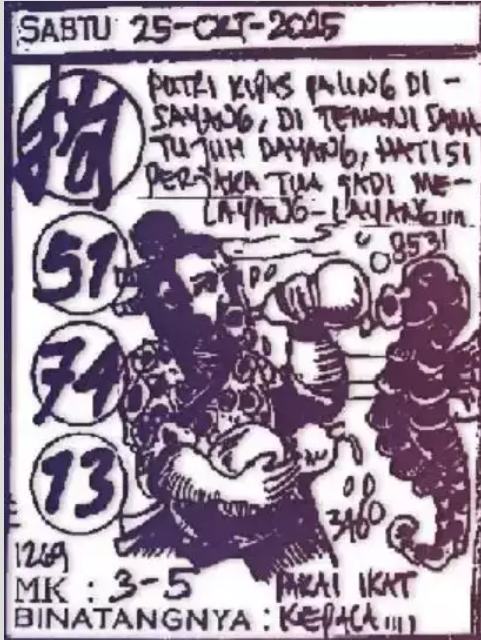 SABTU 25-OKT-2025
PUTRI KIPAS PALING DI-
SAYANG, DI TEMANI SAMA
TUJUH DAYANG, HATI SI
PERJAKA TUA JADI ME-
LAYANG-LAYANG....
8531
51
74
13
3460
1269
MK : 3-5 PAKAI IKAT
BINATANGNYA : KEPALA....